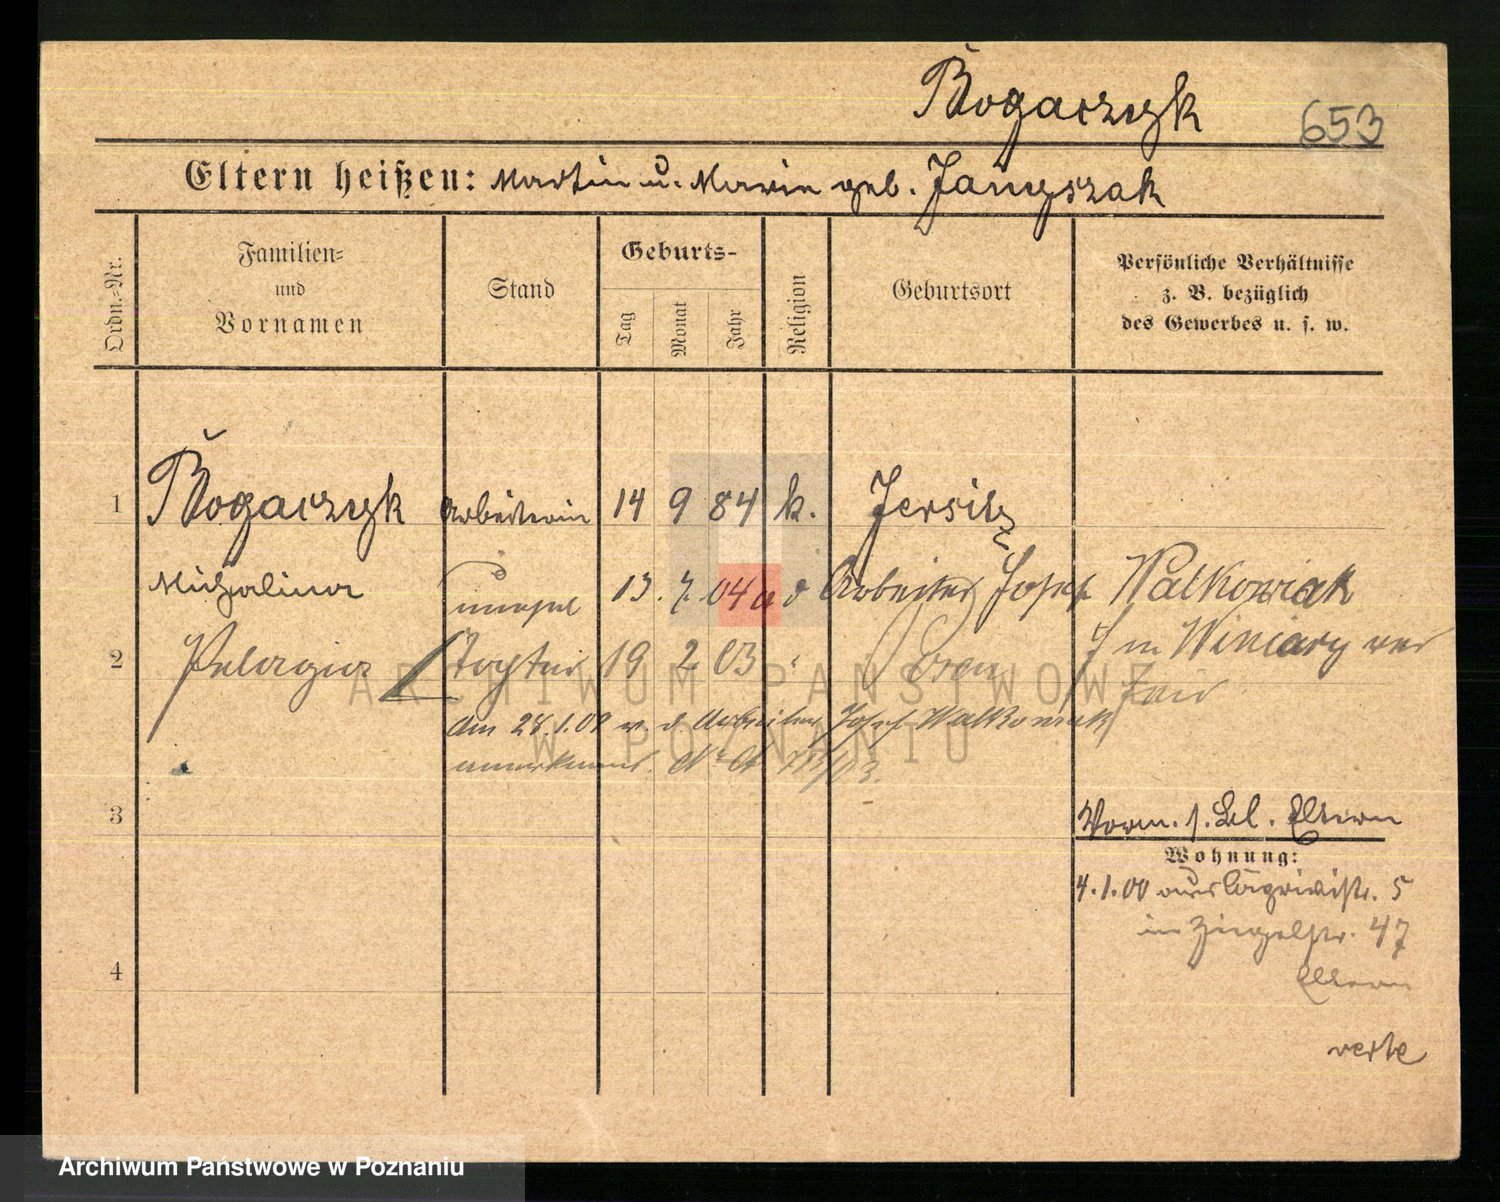 Bogaczyk 653
Eltern heißen: Martin u. Marie geb.
Ordn.=Nr.
Familien=
und
Vornamen
Stand
Geburts-
Tag
Monat
Jahr
Religion
Geburtsort
Persönliche Verhältnisse
z. B. bezüglich
des Gewerbes u. s. w.
1 Bogaczyk Arbeiterin 14 9 84 k. Jersitz
Michalina
13. 7. 04 a d Arbeiter Josef Walkowiak
in Winiary ver
2 Pelagia Tochter 19 2 03 Posen
Am 28.1.09 v. d. Arbeiter Josef Walkowiak
anerkannt.
3
Vorm. s. Bl. Eltern
Wohnung:
4.1.00 aus 5
in Ziegelstr. 47
Eltern
4
verte
ARCHIWUM PAŃSTWOWE
W POZNANIU
Archiwum Państwowe w Poznaniu